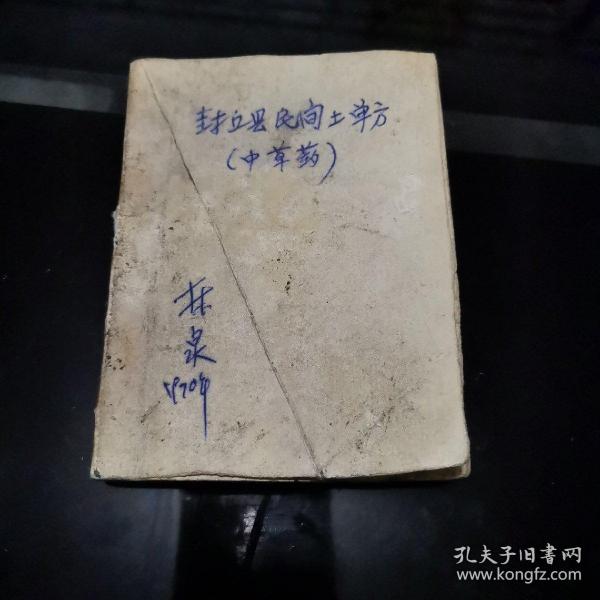 封丘县民间土单方
(中草药)
林
泉
1970年
孔夫子旧書网
www.kongfz.com